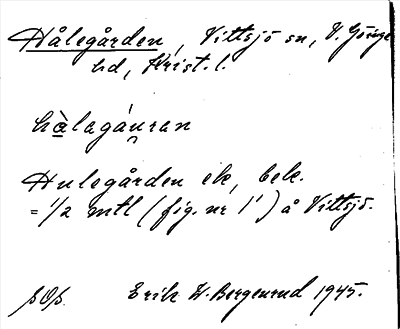 Hålegården, Vittsjö sn, V. Göinge
hd, Krist. l.
hàlagáuran
Hulegården ek, bek.
= 1/2 mtl (fig. nr 1') å Vittsjö.
Erik W. Bergenrud 1945.